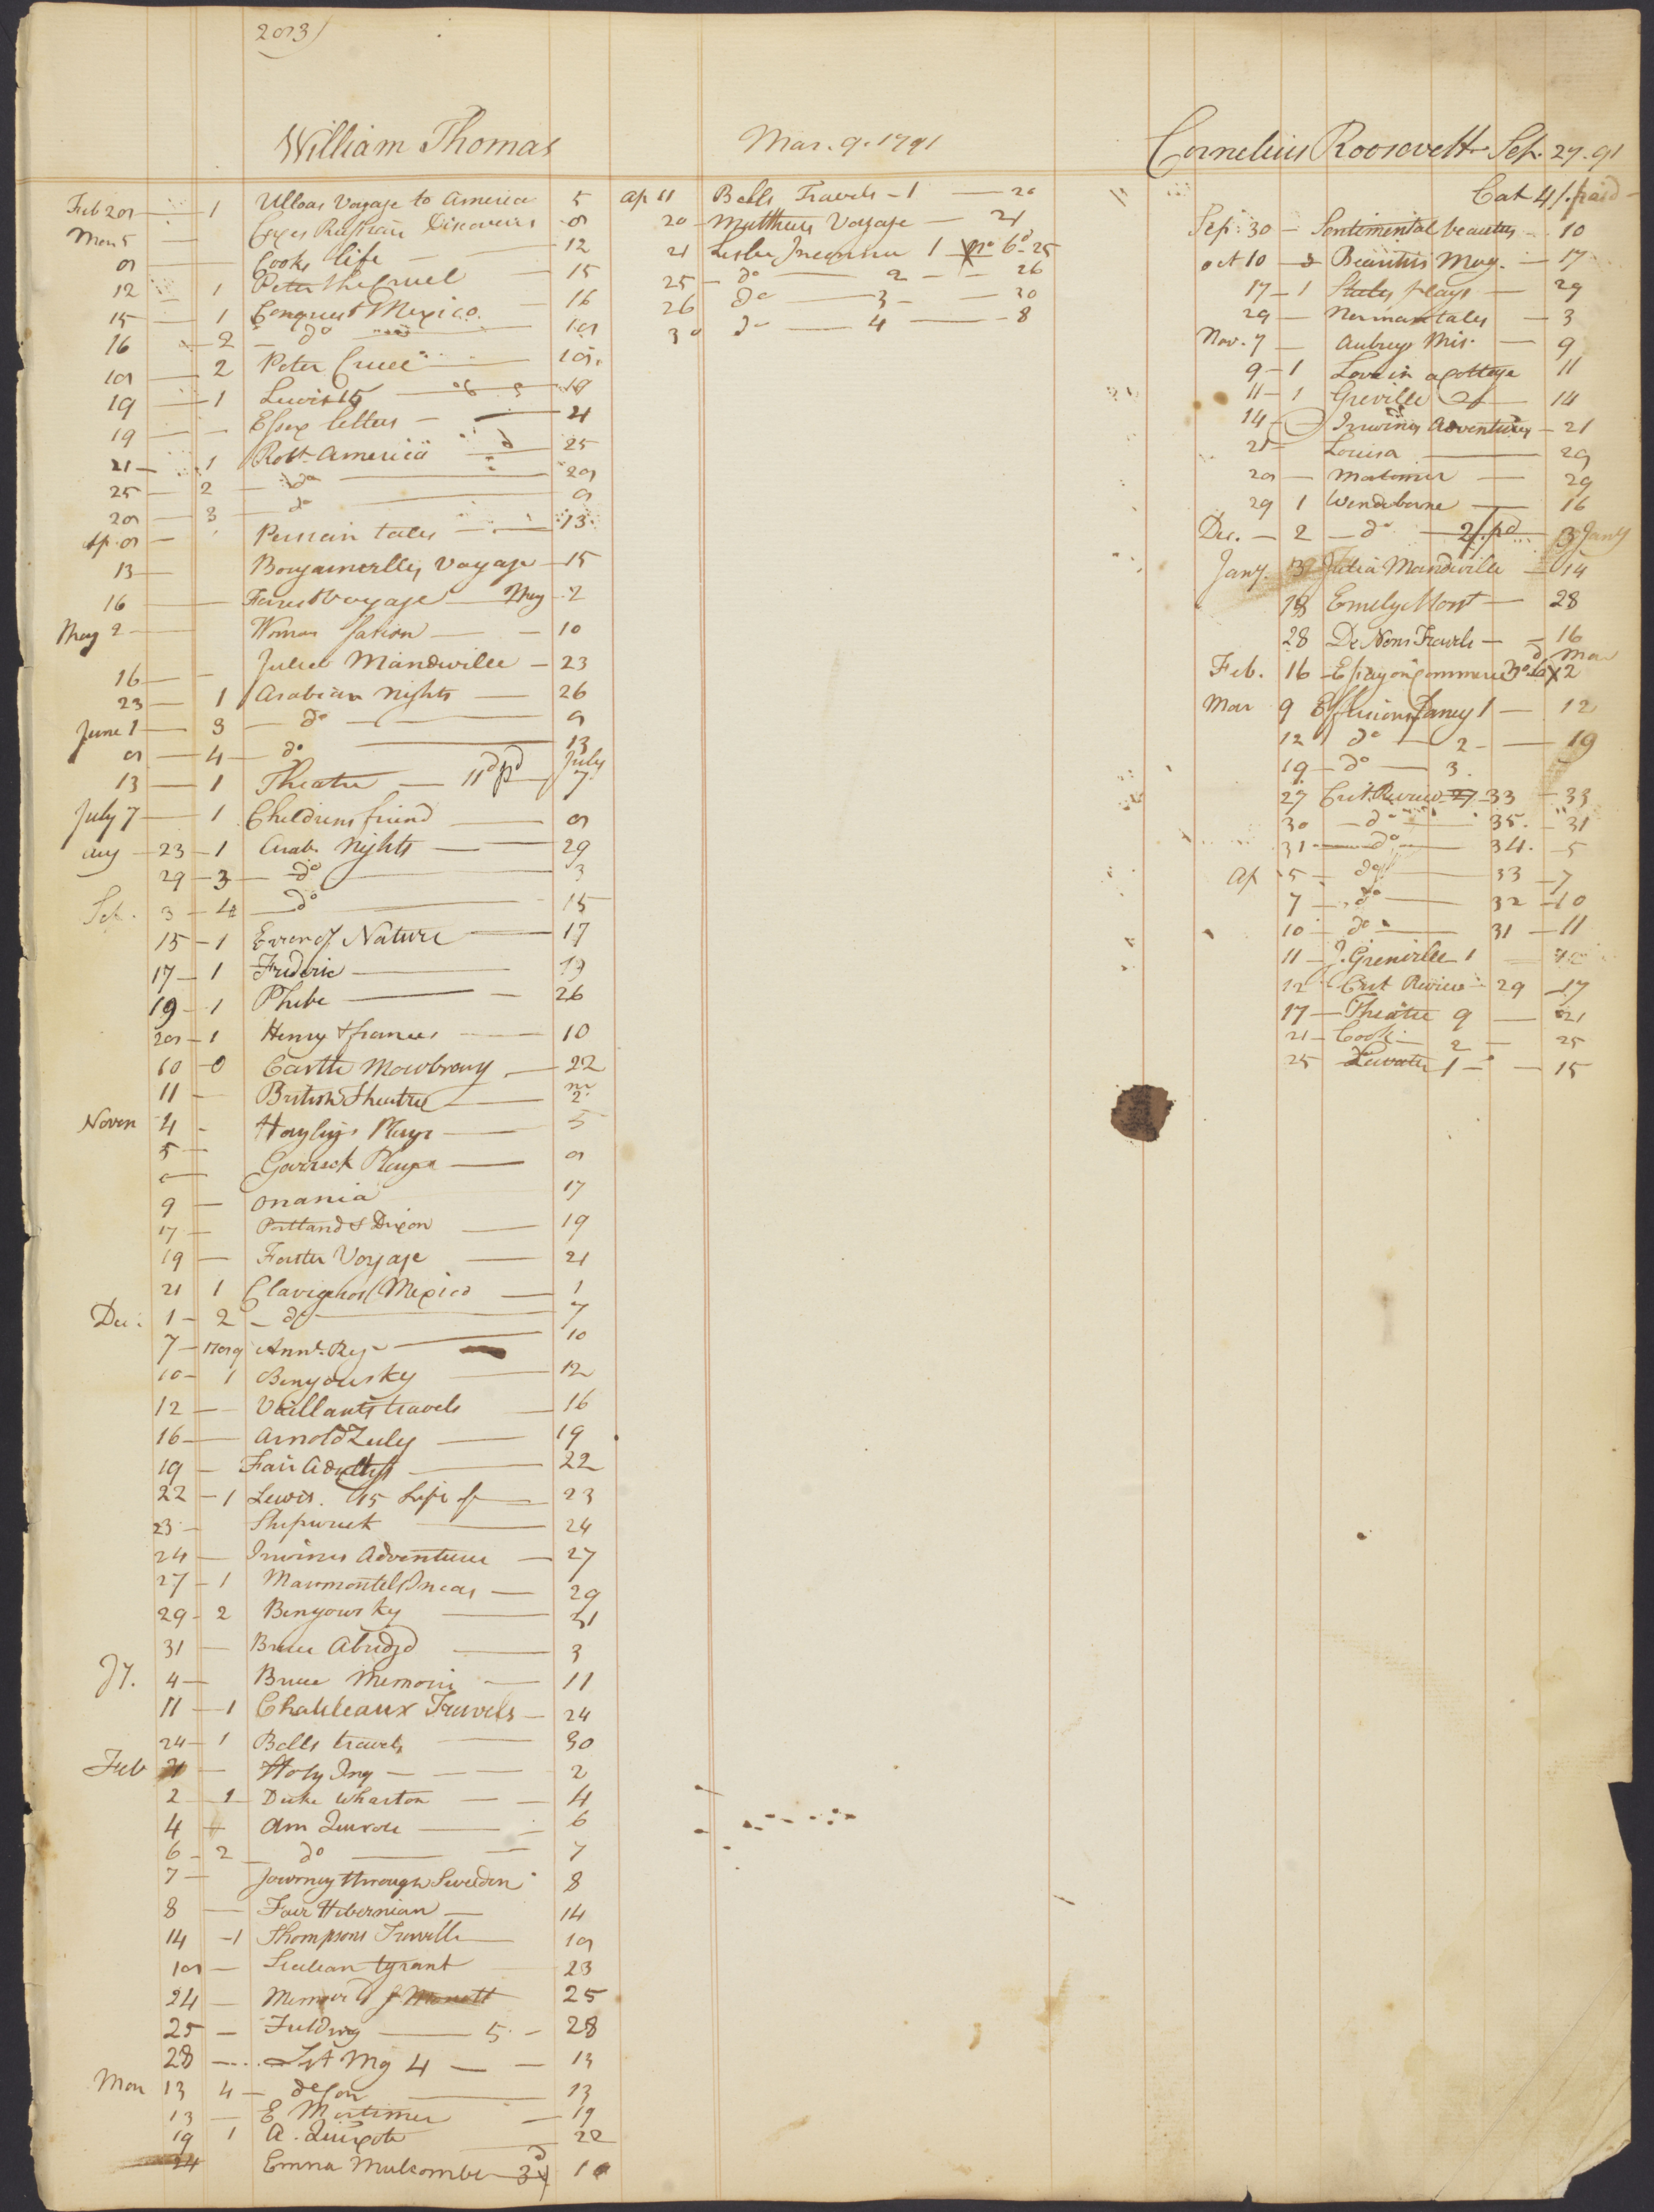 203
William Thomas
Feb 28 — 1 Ulloas Voyage to America 5
Mar 5 — Coxes Russian Discoveries 8
8 — Cooks life — 12
12 1 Peter the Cruel — 15
15 — 1 Conquest Mexico — 16
16 2 — do — 18
18 — 2 Peter Cruel — 18
19 — 1 Lewis 15 — 19
19 — Essex letters — 21
21 — 1 Robt America — 25
25 — 2 — do — 28
28 — 3 — do — 8
Ap. 8 — Persian tales — 13
13 — Bougainvilles Voyage — 15
16 — Forrest Voyage — May 2
May 2 — Woman fashion — 10
16 — Julia Mandeville — 23
23 — 1 Arabian Nights — 26
June 1 — 3 — do — 8
8 — 4 — do — 13
13 — 1 Theatre — 11d pd July 7
July 7 — 1 Childrens friend — 8
Aug — 23 — 1 Arab. Nights — 29
29 — 3 — do — 3
Sep. 3 — 4 — do — 15
15 — 1 Error of Nature — 17
17 — 1 Frederic — 19
19 — 1 Phebe — 26
28 — 1 Henry & frances — 10
10 — Castle Mowbray — 22
11 — British Theatre — 2
Novem 4 — Hayleys Plays — 5
5 — Garrick Plays — 8
9 — Onania 17
17 — Portland & Dixon — 19
19 — Forster Voyage — 21
21 1 Clavigeros Mexico — 1
Dec: 1 — 2 — do — 7
7 — 1789 Annl. Reg — 10
10 — 1 Benyousky — 12
12 — Vaillants travels — 16
16 — Arnold Zulig — 19
19 — Fair Adultress — 22
22 — 1 Lewis. 15 Life of — 23
23 — Shipwreck — 24
24 — Irwines Adventures — 27
27 — 1 Marmontel Incas — 29
29 — 2 Benyowsky — 31
31 — Bruce Abridgd — 3
Jy. 4 — Bruce Memoirs — 11
11 — 1 Chatileaux Travels — 24
24 — 1 Bells travels — 30
Feb 31 — Holy Inq — 2
2 — 1 Duke Wharton — 4
4 — Am Quixote — 6
6 — 2 — do — 7
7 — Journey through Sweeden 8
8 — Fair Hibernian — 14
14 — 1 Thompsons Travells — 18
18 — Sicilean tyrant — 23
24 — Memoirs of 25
25 — Fielding — 5 — 28
28 — Mg 4 — 13
Mar 13 4 — do — 13
13 — E Mortimer — 19
19 1 A. Quixote 22
24 Emma Mulcombe 3d
Mar. 9. 1791
Ap 11 Bells Travels — 1 — 20
20 — Matthews Voyage — 21
21 Leslie 1 6d 25
25 — do — 2 — 26
26 do — 3 — 30
30 do — 4 — 8
Cornelius Roosevelt Sep. 27. 91
Cat 4/. paid
Sep: 30 — Sentimental beauties — 10
Oct 10 — Beauties Mag. — 17
17 — 1 Plays — 29
29 — Norman tales — 3
Nov. 7 — Aubreys Mis. — 9
9 — 1 Love in a Cottage 11
11 — 1 Greville 2 — 14
14 — Irwing Adventures — 21
21 — Louisa — 29
28 — Mortimer — 29
29 1 Wenderborne — 16
Dec. — 2 — do — 2/. pd 3 Jany
Jany. 13 Julia Mandeville — 14
18 Emely Mont — 28
28 De Nons Travels — 16
Feb. 16 — Essay on Commerce 6d Mar 2
Mar 9 Effusions fancy 1 — 12
12 do — 2 — 19
19 — do — 3.
27 Crit. Review 27 33 — 33
30 — do — 35. — 31
31 — do — 34. — 5
Ap 5 — do — 33 — 7
7 — do — 32 — 10
10 — do — 31 — 11
11 — J. Grenville 1
12 Crit Review — 29 — 17
17 — Theatre 9 — 21
21 — Cook — 2 — 25
25 Lavater 1 — 15